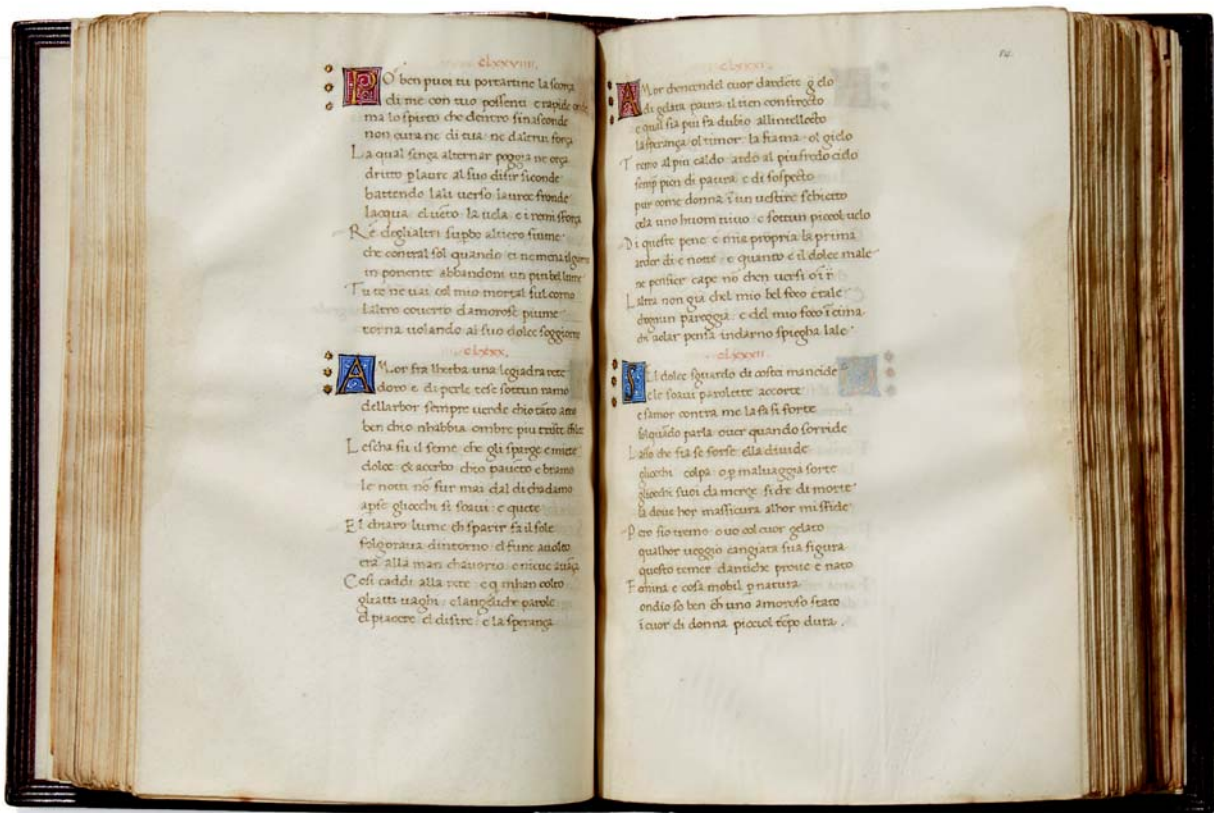 clxxviiii.
PO ben puoi tu portartine la scorza
di me con tuo possenti e rapide onde
ma lo spirto che dentro sinasconde
non cura ne di tua ne daltrui forza
La qual senza alternar poggia ne orza
dritto p laure al suo disir siconde
battendo lali uerso lauree fronde
lacqua el ueto la uela e i remi sforza
Re deglialtri supbo altiero fiume
che contral sol quando ei ne mena il giorno
in ponente abbandoni un piu bel lume
Tu te ne uai col mio mortal sul corno
laltro couerto damorose piume
torna uolando al suo dolce soggiorno
clxxx.
AMor fra lherba una legiadra rete
doro e di perle tese sottun ramo
dellarbor sempre uerde chio tāto amo
ben chio nhabbia ombre piu triste
Lescha fu il seme che gli sparge e miete
dolce & acerbo chio pauēto e bramo
le notti nō fur mai dal di chadamo
apse gliocchi si soaui e quete
El chiaro lume ch sparir fa il sole
folgoraua dintorno el fune auolto
era alla man chauorio e neue auāza
Cosi caddi alla rete e q mhan colto
gliatti uaghi e langeliche parole
el piacere el disire e la speranza
clxxxi.
84.
AMor chencendel cuor dardete zelo
di gelata paura il tien constrecto
e qual sia piu fa dubio allintellecto
la speranza ol timor la fiama ol gielo
Tremo al piu caldo ardo al piu fredo cielo
semp pien di paura e di sospecto
pur come donna ī un uestire schietto
cela uno huom uiuo e sottun piccol uelo
Di queste pene e mia propria la prima
arder di e notte e quanto e il dolce male
ne pensier cape nō chen uersi o ī r
Laltra non gia chel mio bel foco e tale
chognun pareggia e del mio foco ī cima
chi uolar pensa indarno spiegha lale
clxxxii.
SEl dolce sguardo di costei mancide
e le soaui parolette accorte
e samor contra me la fa si forte
sol quādo parla ouer quando sorride
Lasso che fia se forse ella diuide
gliocchi colpa o p maluaggia sorte
gliocchi suoi da merze si che di morte
la doue hor massicura alhor mi sfide
Pero sio tremo o uo col cuor gelato
qualhor ueggio cangiata sua figura
questo temer dantiche proue e nato
Femina e cosa mobil p natura
ondio so ben ch uno amoroso stato
ī cuor di donna picciol tēpo dura .